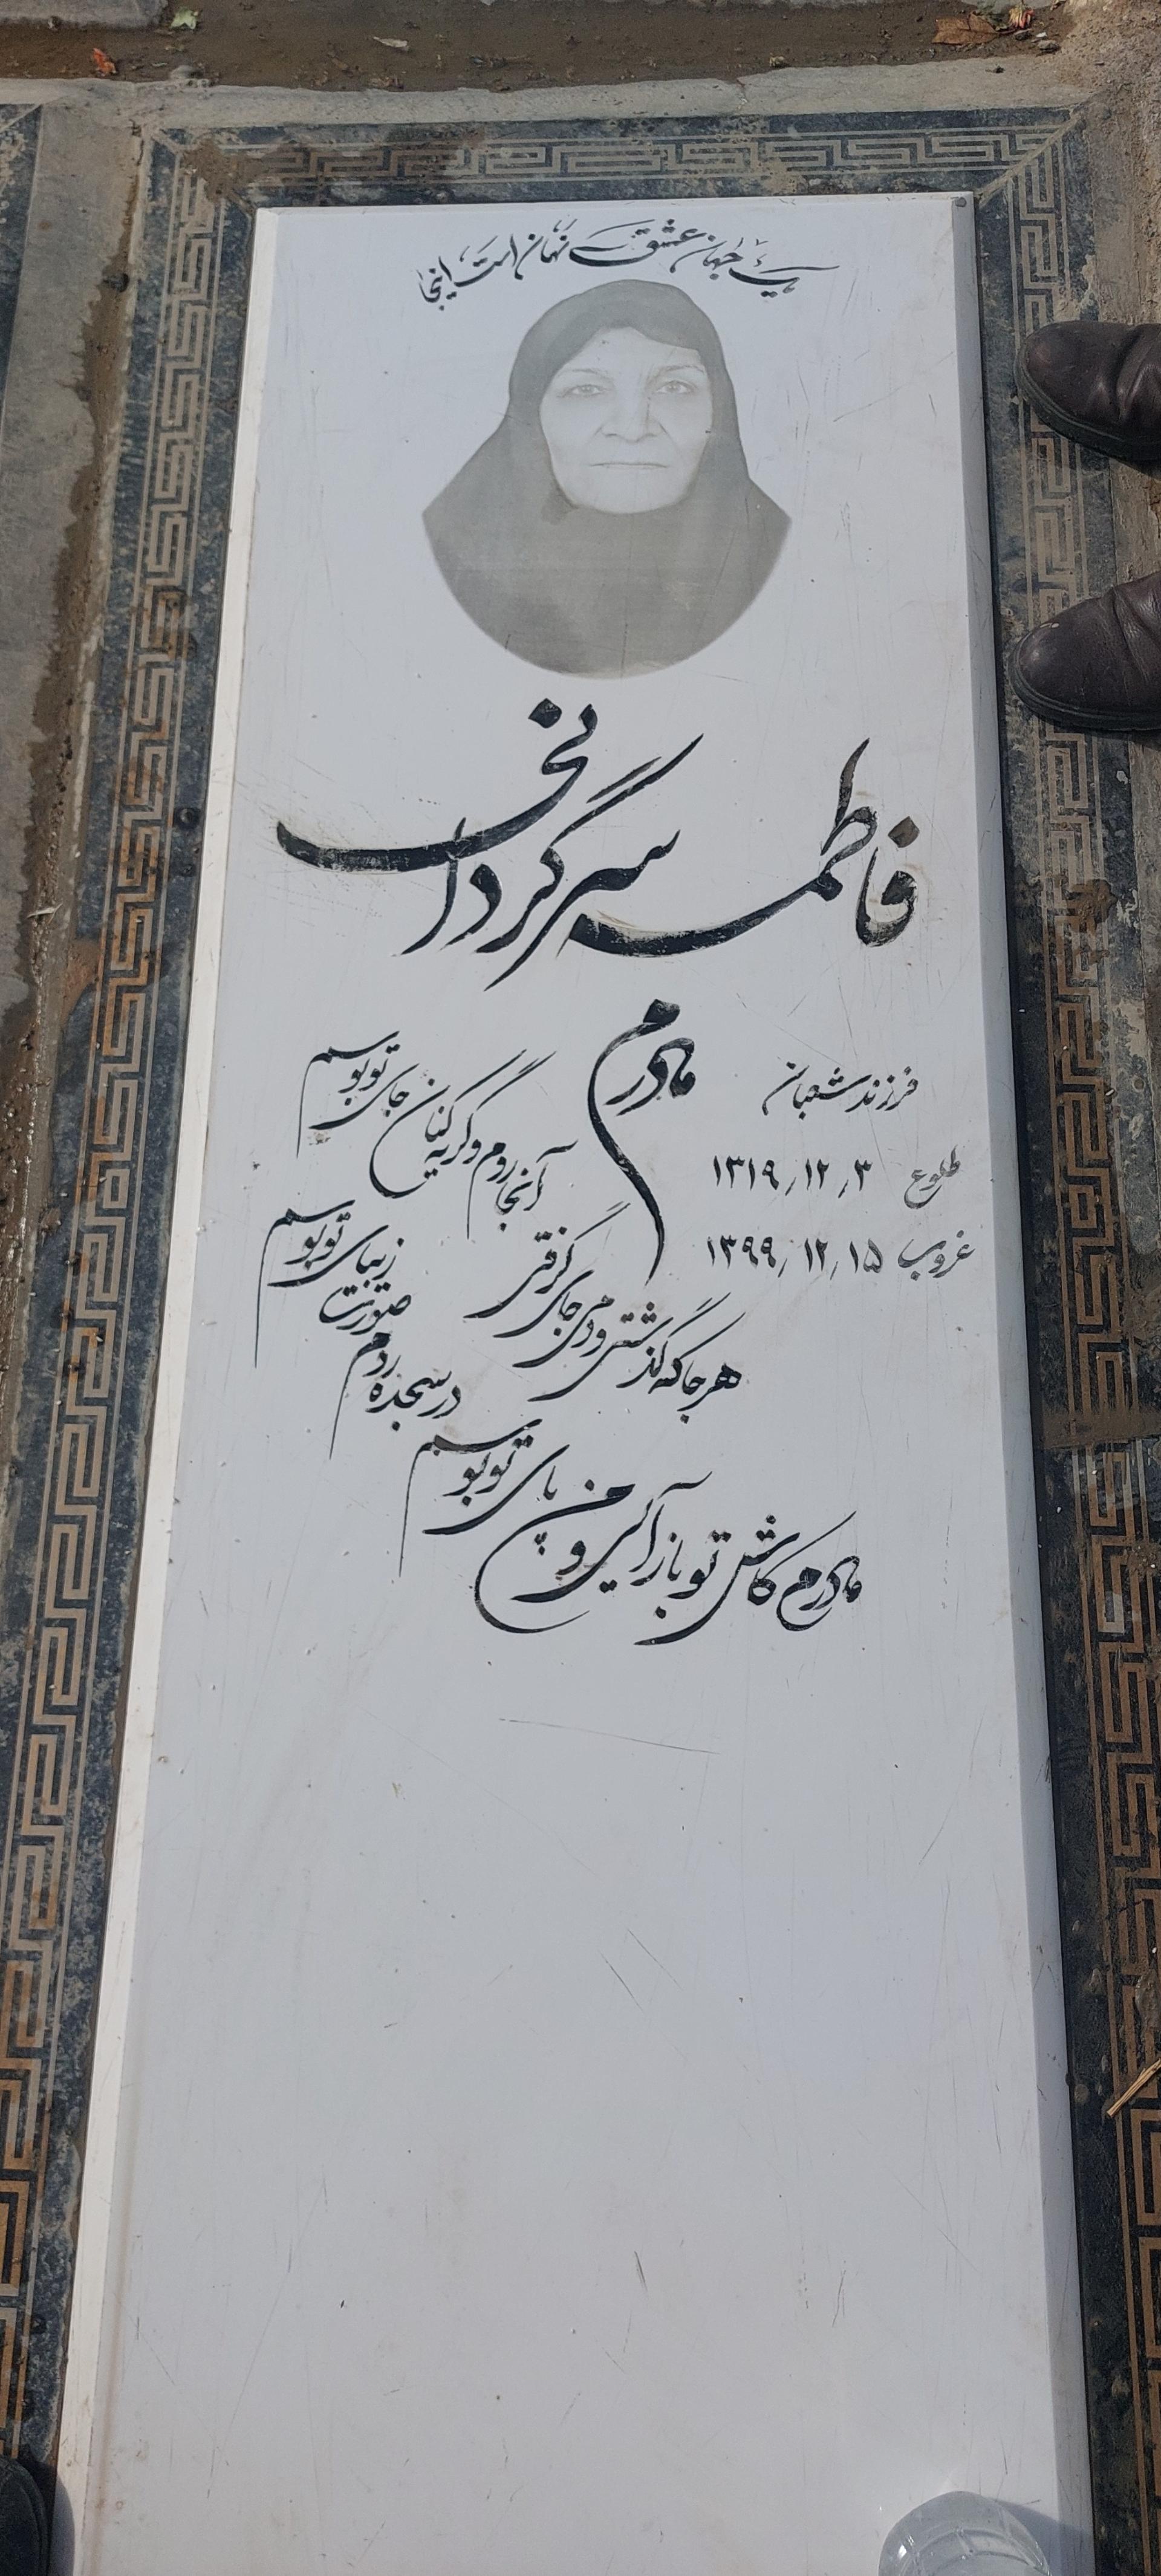 یک جهان عشق نهان است اینجا
فاطمه سرگردانی
فرزند شعبان
طلوع ۱۳۱۹/۱۲/۳
غروب ۱۳۹۹/۱۲/۱۵
مادرم
هر جا که گذشتی و دمی جای گرفتی
آنجا روم و گریه کنان جای تو بوسم
مادرم کاش تو باز آئی و من پای تو بوسم
در سجده روم صورت زیبای تو بوسم